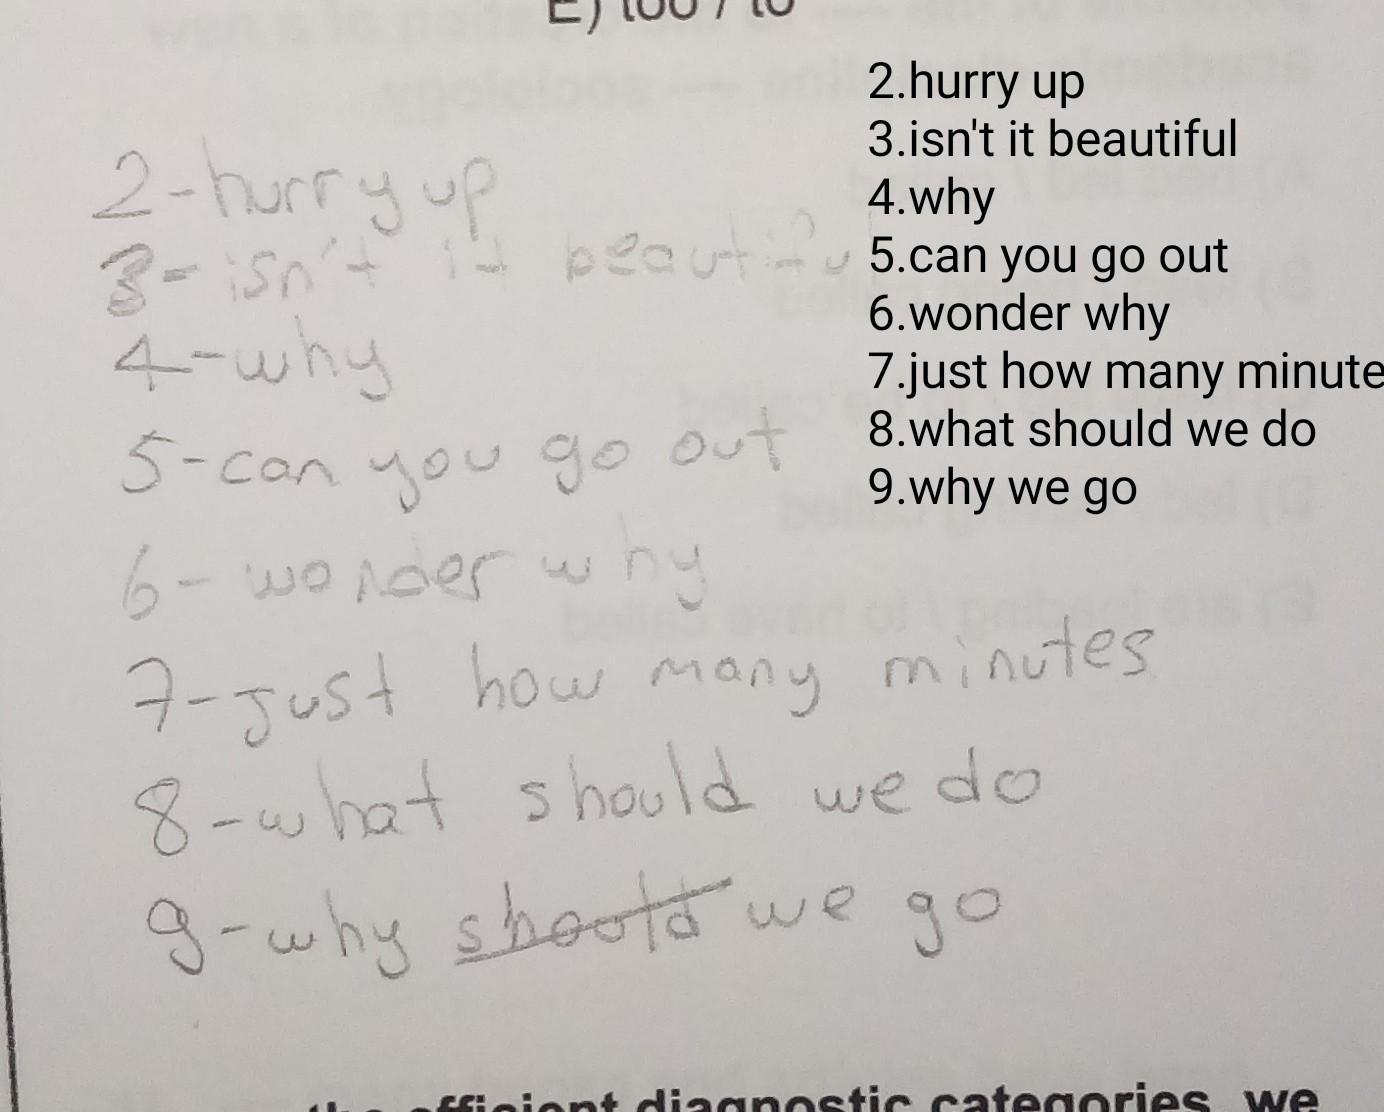 E) too / to
2.hurry up
3.isn't it beautiful
4.why
5.can you go out
6.wonder why
7.just how many minute
8.what should we do
9.why we go
2-hurry up
3- isn't it beautiful
4-why
5-can you go out
6- wonder why
7-just how many minutes
8-what should we do
9-why should we go
the efficient diagnostic categories, we